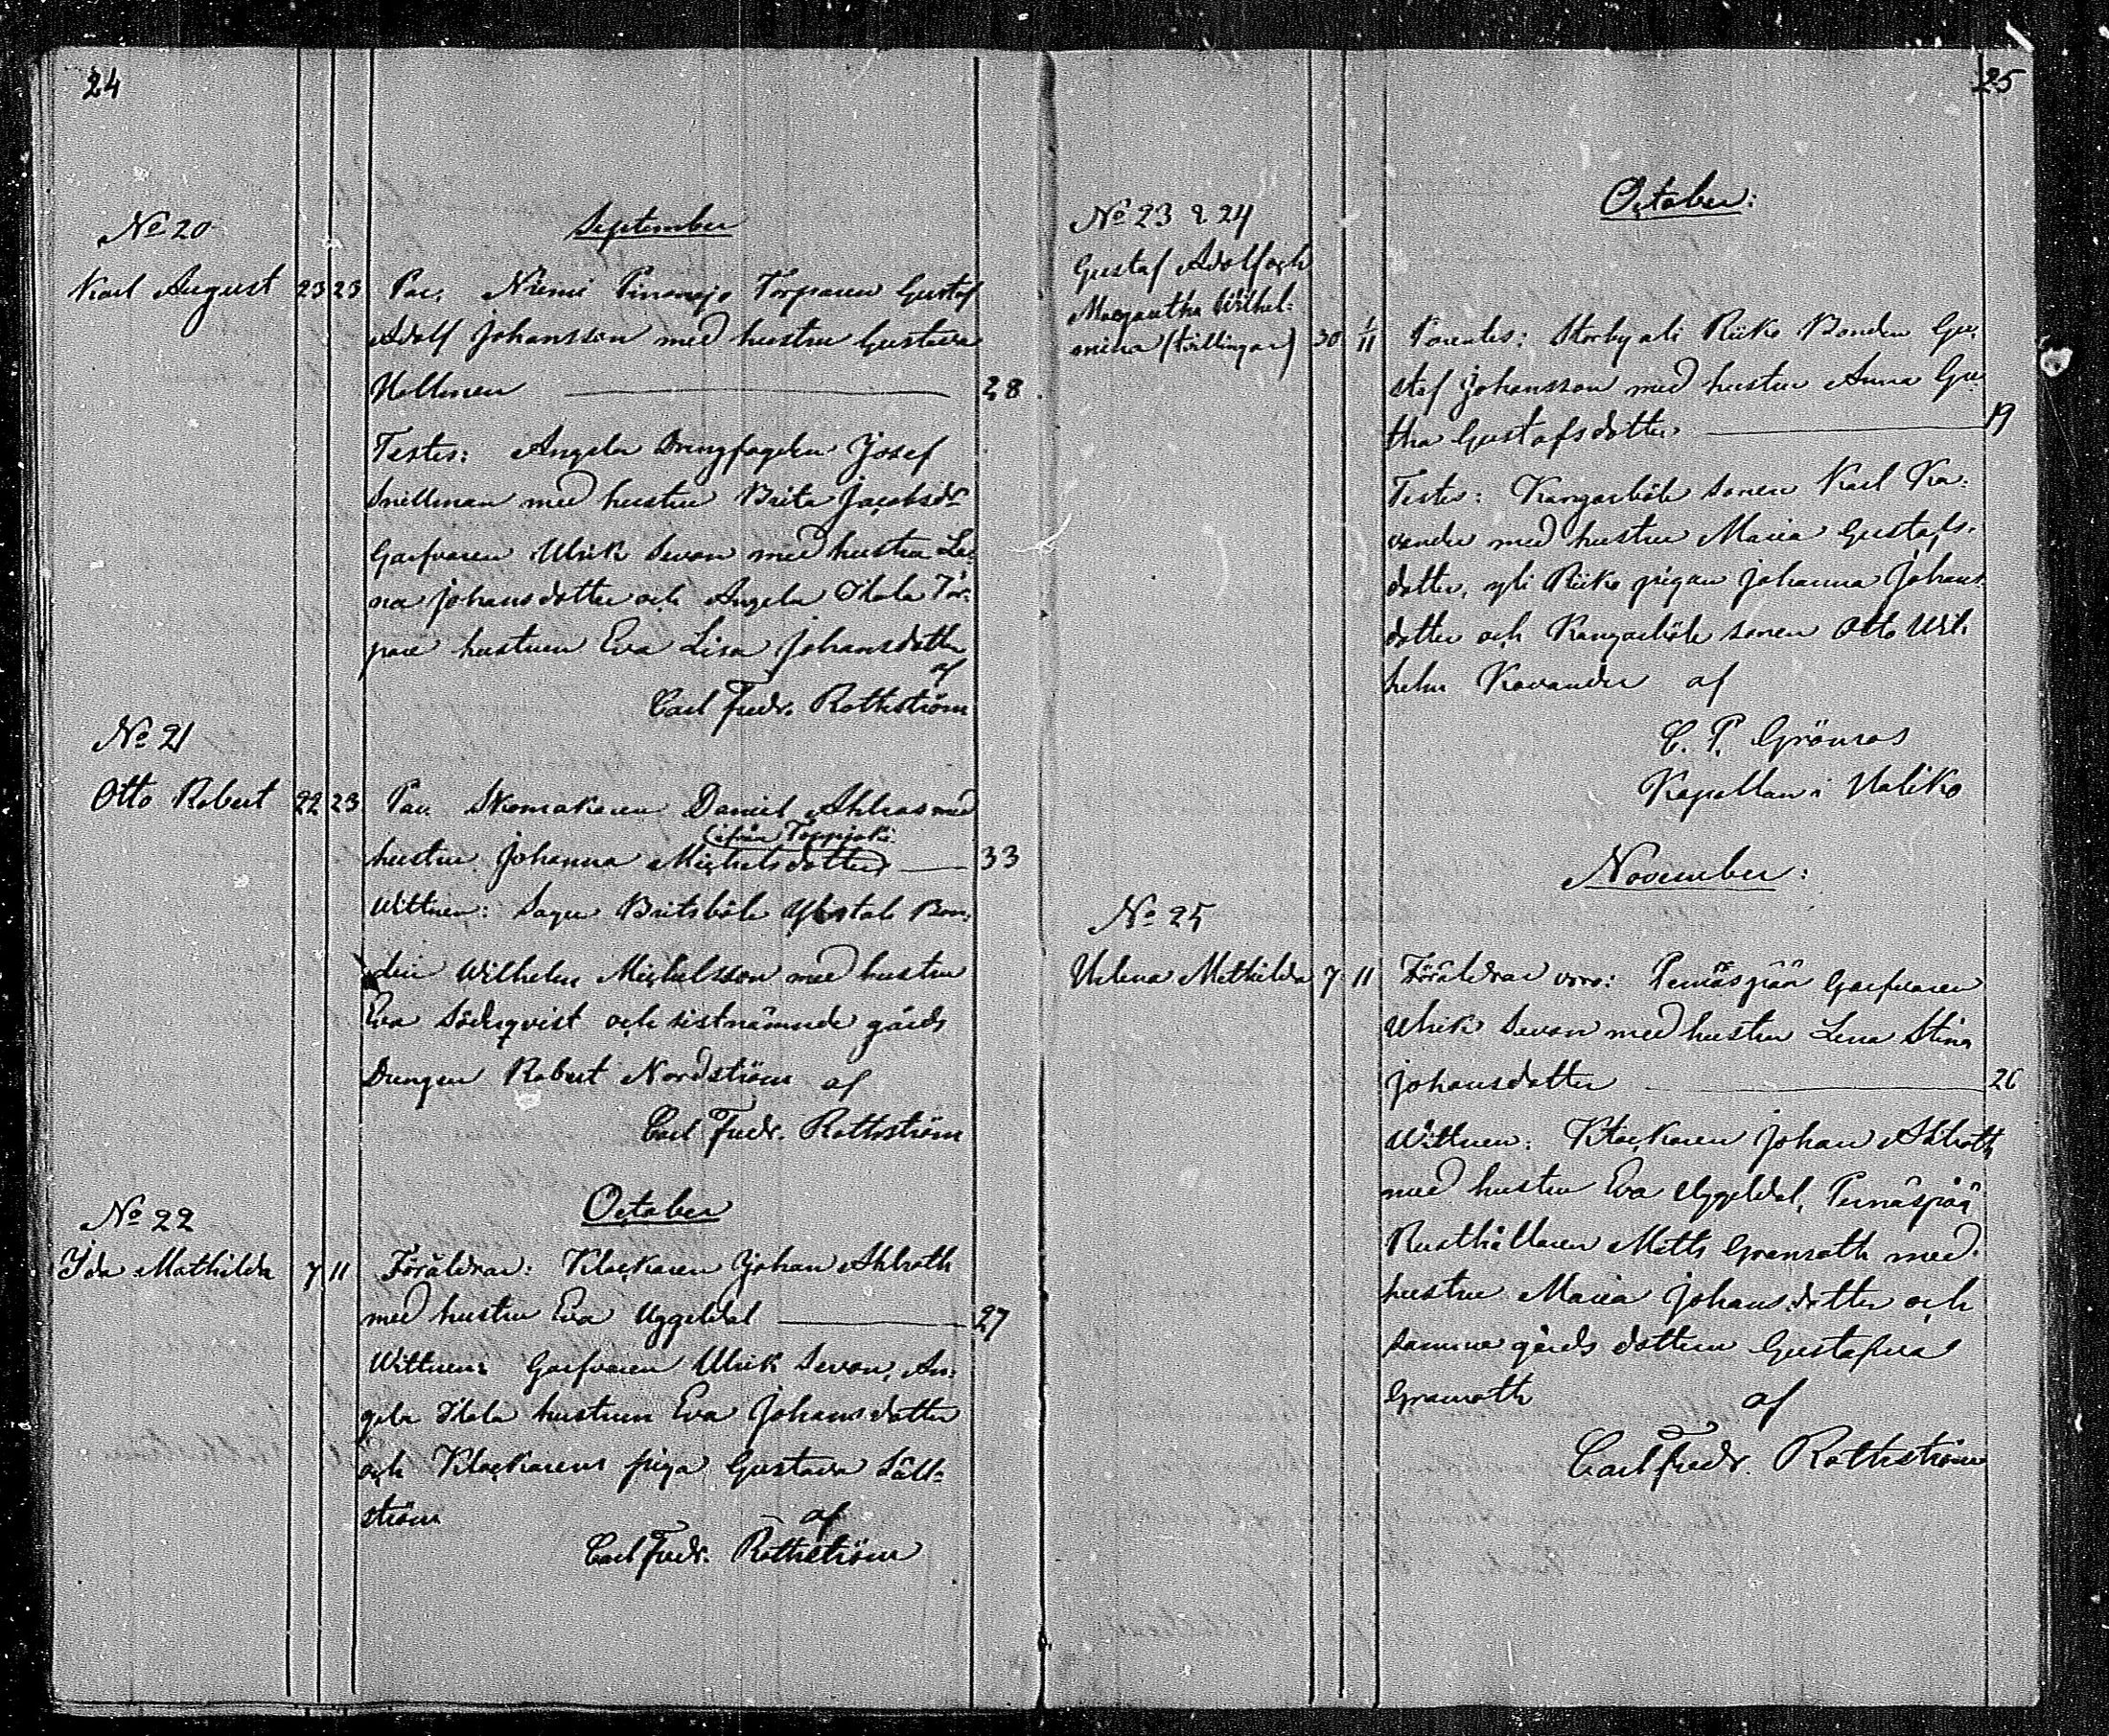 24
September
No 20
Karl August 23 23 Par. Niemi Torparen Gustaf
Adolf Johansson med hustru Gustava
Hellmen 28
Testes: Angela Drengfogden Josef
Snellman med hustru Brita Jacobsdr
Garfvaren Ulrik Sevon med hustru Le-
na Johansdotter och Angela Itala Tor-
pare hustrun Eva Lisa Johansdotter
af
Carl Fredr. Rothström
No 21
Otto Robert 22 23 Par. Skomakaren Daniel Ahlros med
ifrån Toppjoki
hustru Johanna Michelsdotter 33
Wittnen: Sagu Britsböle Ylistalo Bon-
den Wilhelm Michelsson med hustru
Eva Söderqvist och sistnämnde gårds
Drengen Robert Nordström af
Carl Fredr. Rothström
October
No 22
Ida Mathilda 7 11 Föräldrar: Klockaren Johan Ahlroth
med hustru Eva Uggeldal 27
Wittnen: Garfvaren Ulrik Sevon, An-
gela Itala hustrun Eva Johansdotter
och Klockarens piga Gustava Säll-
ström af
Carl Fredr. Rothström
25
October:
No 23 & 24
Gustaf Adolf och
Margaretha Wilhel-
mina (tvillingar) 30 1/11 Parentes: Storby ali Riiko Bonden Gu-
staf Johansson med hustru Anna Gre-
tha Gustafsdotter 19
Testes: Kangarböle sonen Karl Ka-
vander med hustru Maria Gustafs-
dotter, yli Riiko pigan Johanna Johans-
dotter och Kangarböle sonen Otto Wil-
helm Kavander af
C. P. Grönroos
Kapellan i Uskela
November:
No 25
Helena Mathilda 7 11 Föräldrar voro: Pernäspää Garfvaren
Ulrik Sevon med hustru Lena Stina
Johansdotter 26
Wittnen: Klockaren Johan Ahlroth
med hustru Eva Uggeldal, Pernäspää
Rusthållaren Matts Granroth med
hustru Maria Johansdotter och
samma gårds dottern Gustafva
Granroth af
Carl Fredr. Rothström